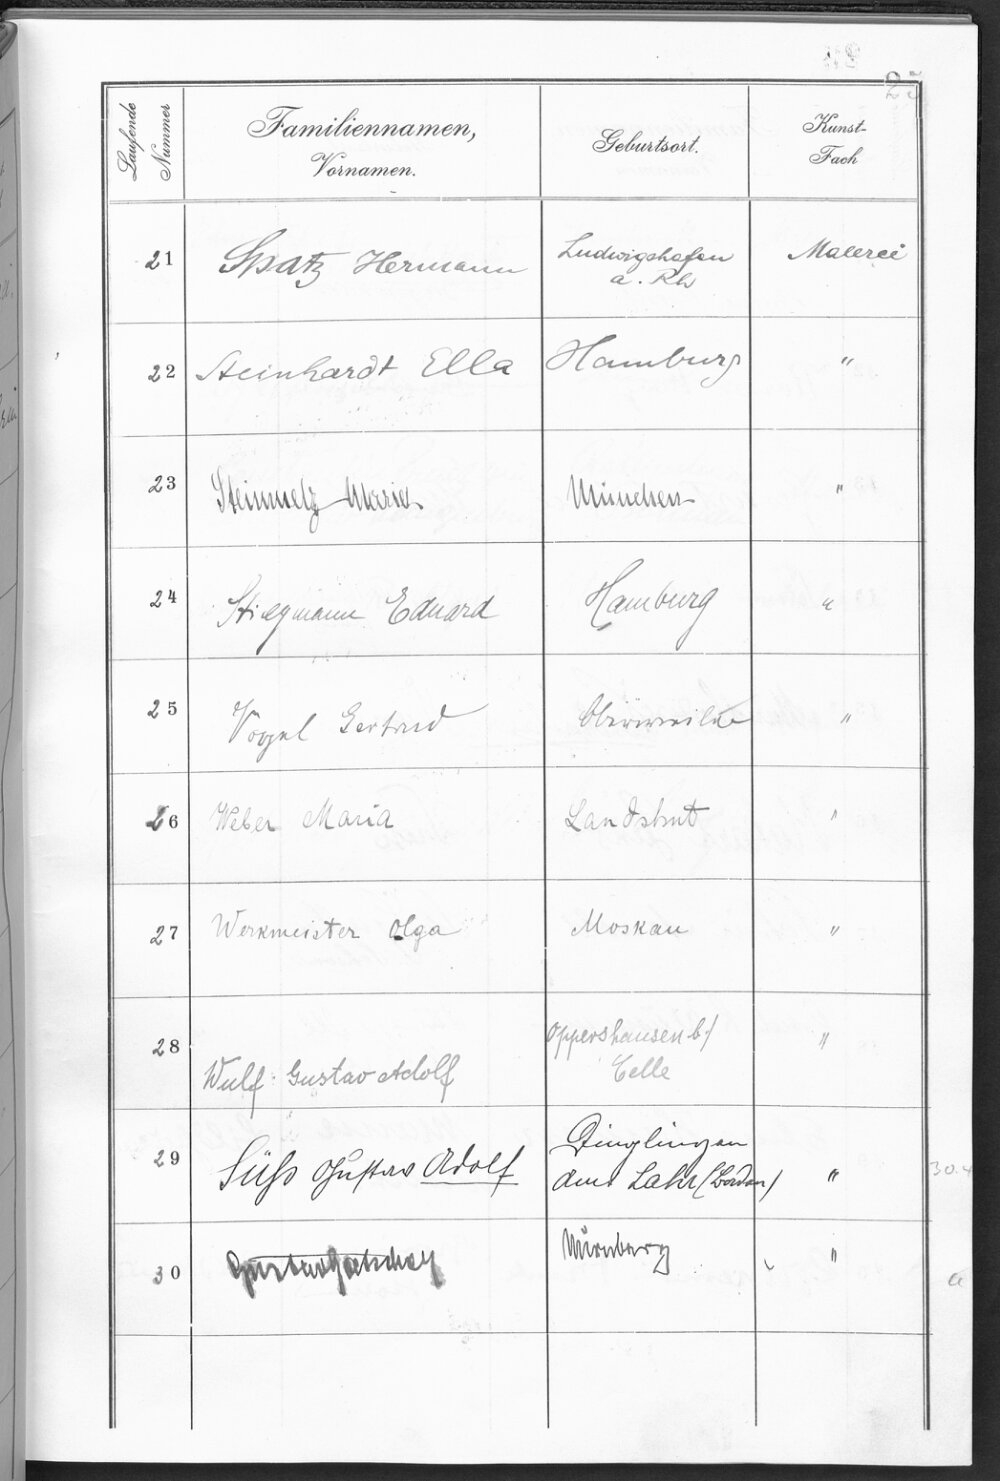 25
Laufende Nummer
Familiennamen, Vornamen.
Geburtsort.
Kunst-Fach
21 Spatz Hermann Ludwigshafen a. Rh Malerei
22 Steinhardt Ella Hamburg "
23 Steinmetz Maria München "
24 Stiegmann Eduard Hamburg "
25 Vogel Gertrud "
26 Weber Maria Landshut "
27 Werkmeister Olga Moskau "
28 Wulf Gustav Adolf Oppershausen b/ Celle "
29 Süß Gustav Adolf Dinglingen Amt Lahr (Baden) "
30 Gustav Nürnberg "
30.4
a